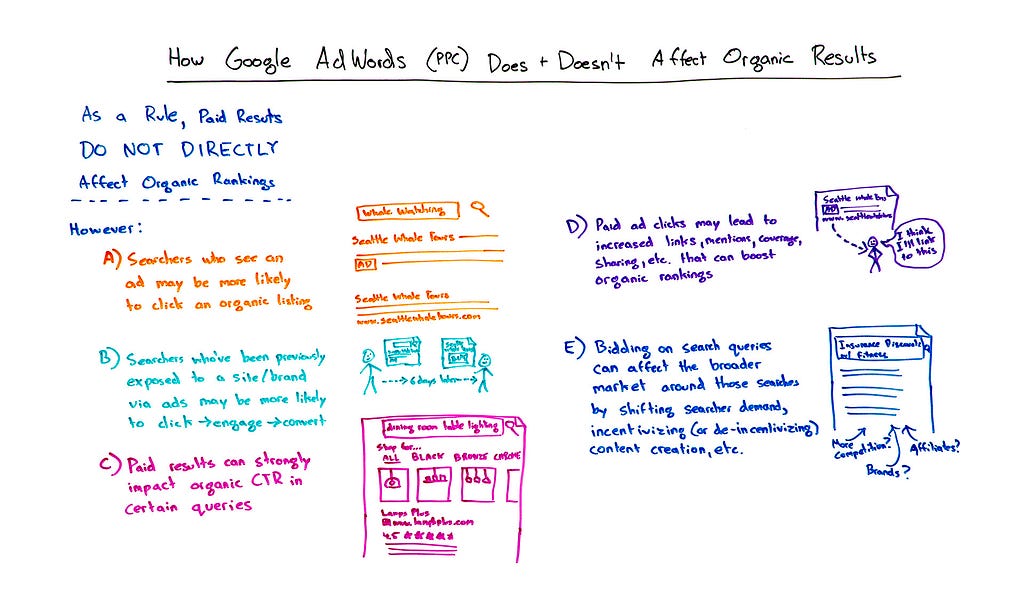 How Google AdWords (PPC) Does + Doesn't Affect Organic Results
As a Rule, Paid Resuts
DO NOT DIRECTLY
Affect Organic Rankings
However:
A) Searchers who see an
ad may be more likely
to click an organic listing
Whale Watching
Seattle Whale Tours
AD
Seattle Whale Tours
www.seattlewhaletours.com
B) Searchers who've been previously
exposed to a site/brand
via ads may be more likely
to click →engage →convert
6 days later
C) Paid results can strongly
impact organic CTR in
certain queries
dining room table lighting
Shop for...
ALL BLACK BRONZE CHROME
Lamps Plus
www.lampsplus.com
4.5 ★★★★★
D) Paid ad clicks may lead to
increased links, mentions, coverage,
sharing, etc. that can boost
organic rankings
Seattle Whale
AD
I think
I'll link
to this
E) Bidding on search queries
can affect the broader
market around those searches
by shifting searcher demand,
incentivizing (or de-incentivizing)
content creation, etc.
Insurance Discounts
w/ Fitness
More
Competition?
Brands?
Affiliates?